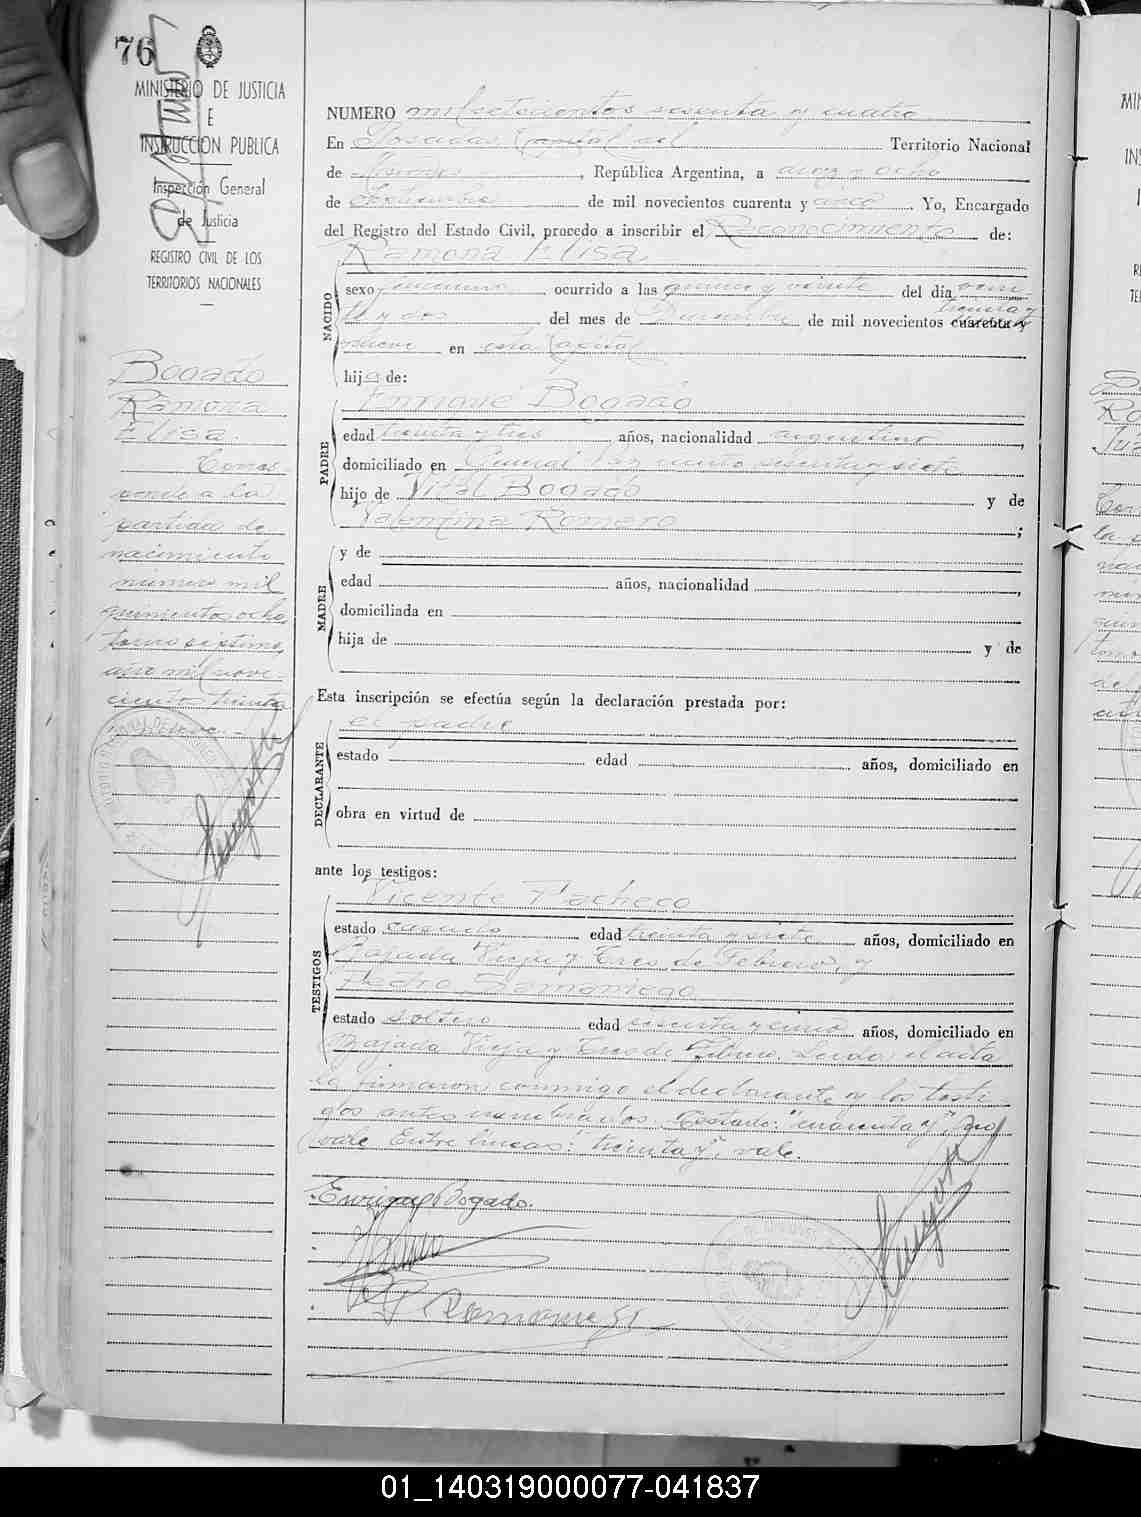 76
MINISTERIO DE JUSTICIA
E
INSTRUCCION PUBLICA
Inspección General
de Justicia
REGISTRO CIVIL DE LOS
TERRITORIOS NACIONALES
Bogado
Ramona
Elisa.
Corres-
ponde a la
partida de
nacimiento
número mil
quinientos ocho,
tomo séptimo,
año mil nove-
cientos treinta
y nueve.-
NUMERO mil seiscientos sesenta y cuatro
En Posadas, Capital del Territorio Nacional
de Misiones, República Argentina, a diez y ocho
de Septiembre de mil novecientos cuarenta y cinco. Yo, Encargado
del Registro del Estado Civil, procedo a inscribir el Reconocimiento de:
Ramona Elisa
NACIDO
sexo femenino ocurrido a las quince y veinte del día vein-
treinta y
te y dos del mes de Diciembre de mil novecientos cuarenta y
nueve en esta Capital
hija de:
PADRE
Enrique Bogado
edad treinta y tres años, nacionalidad argentino,
domiciliado en General Paz ciento sesenta y siete
hijo de Vital Bogado y de
Valentina Romero;
MADRE
y de
edad años, nacionalidad,
domiciliada en
hija de y de
Esta inscripción se efectúa según la declaración prestada por:
DECLARANTE
el padre
estado edad años, domiciliado en
obra en virtud de
ante los testigos:
TESTIGOS
Vicente Pacheco
estado casado edad treinta y siete años, domiciliado en
Bajada Vieja y Tres de Febrero, y
Pedro Samaniego
estado soltero edad sesenta y cinco años, domiciliado en
Bajada Vieja y Tres de Febrero. Leída el acta
la firmaron conmigo el declarante y los testi-
gos antes nombrados. Testado: "cuarenta y", no
vale. Entre líneas: "treinta y", vale.
Enrique Bogado.
01_140319000077-041837